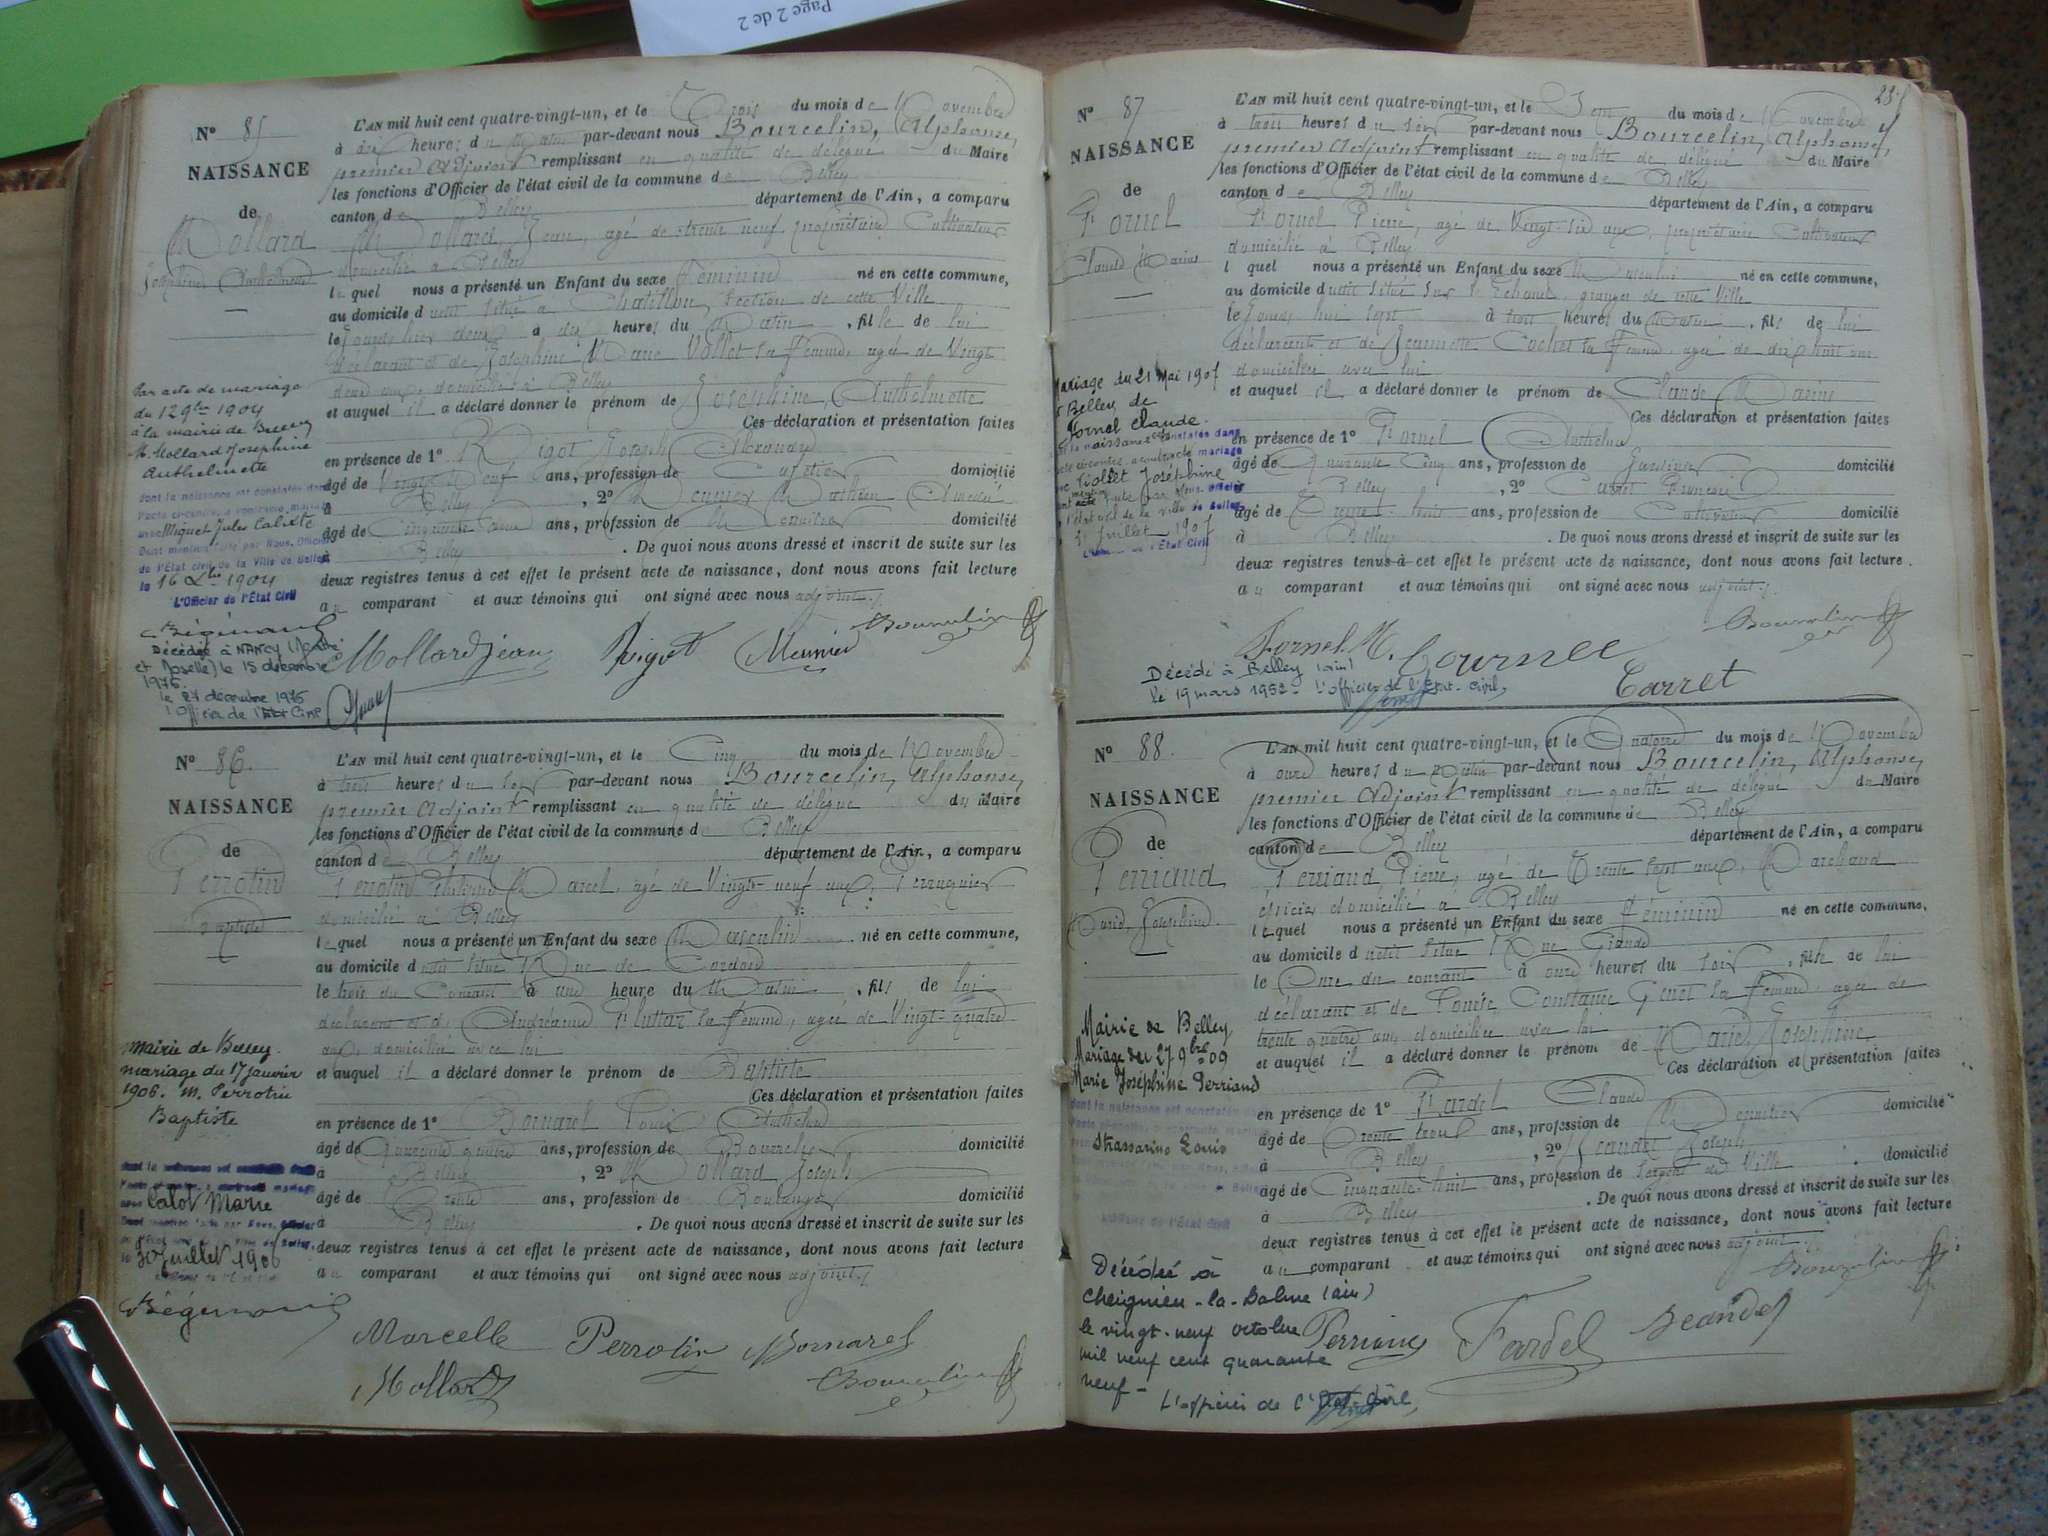 Page 2 de 2
N° 85
NAISSANCE
de
Mollard
Joséphine Anthelmette
L'AN mil huit cent quatre-vingt-un, et le Trois du mois de Novembre
à dix heures du Matin par-devant nous Bourcelin, Alphonse,
premier adjoint remplissant en qualité de délégué du Maire
les fonctions d'Officier de l'état civil de la commune de Belley
canton de Belley département de l'Ain, a comparu
Mollard, Jean, agé de trente neuf, propriétaire Cultivateur
domicilié à Belley
lequel nous a présenté un Enfant du sexe Féminin né en cette commune,
au domicile d situé à Chatillon, section de cette Ville
le Jourdhier deux à dix heures du Matin, fille de lui
déclarant et de Joséphine Marie Vollet sa femme, agée de Vingt
deux ans, domiciliée à Belley
et auquel il a déclaré donner le prénom de Joséphine, Anthelmette
Ces déclaration et présentation faites
en présence de 1° Rigot Joseph
âgé de Vingt Neuf ans, profession de Cafetier domicilié
à Belley, 2° Meunier Mathieu
âgé de Cinquante ans, profession de Menuisier domicilié
à Belley. De quoi nous avons dressé et inscrit de suite sur les
deux registres tenus à cet effet le présent acte de naissance, dont nous avons fait lecture
au comparant et aux témoins qui ont signé avec nous adjoint
Mollard jean Rigot Meunier Bourcelin
Par acte de mariage
du 12 9bre 1904
à la mairie de Belley
M. Mollard Josephine
Anthelmette
dont la naissance est constatée dans
l'acte ci-contre, a contracté mariage
avec Miquet Jules Calixte
Dont mention faite par Nous, Officier
de l'État civil de la Ville de Belley
le 16 Xbre 1904
L'Officier de l'État Civil
Décédée à NANCY (Meurthe
et Moselle) le 15 décembre
1976.
le 27 décembre 1976
l'Officier de l'Etat Civil
N° 86.
NAISSANCE
de
Perrotin
Baptiste
L'AN mil huit cent quatre-vingt-un, et le Cinq du mois de Novembre
à trois heures du soir par-devant nous Bourcelin, Alphonse,
premier adjoint remplissant en qualité de délégué du Maire
les fonctions d'Officier de l'état civil de la commune de Belley
canton de Belley département de l'Ain, a comparu
Perrotin Marcel, agé de Vingt-neuf ans, Perruquier
domicilié à Belley
lequel nous a présenté un Enfant du sexe Masculin né en cette commune,
au domicile d situé Rue de
le trois du Courant à une heure du Matin, fils de lui
déclarant et d sa femme, agée de Vingt-quatre
ans, domiciliée avec lui
et auquel il a déclaré donner le prénom de Baptiste
Ces déclaration et présentation faites
en présence de 1° Bornarel Louis Anthelme
âgé de Quarante quatre ans, profession de Bourrelier domicilié
à Belley, 2° Mollard Joseph
âgé de Trente ans, profession de Boulanger domicilié
à Belley. De quoi nous avons dressé et inscrit de suite sur les
deux registres tenus à cet effet le présent acte de naissance, dont nous avons fait lecture
au comparant et aux témoins qui ont signé avec nous adjoint
Marcelle Perrotin Bornarel
Mollard Bourcelin
Mairie de Belley.
mariage du 17 janvier
1906. M. Perrotin
Baptiste
Calot Marie
30 juillet 1906
23
N° 87
NAISSANCE
de
Fornel
Claude Marius
L'AN mil huit cent quatre-vingt-un, et le Sept du mois de Novembre
à trois heures du soir par-devant nous Bourcelin, Alphonse,
premier adjoint remplissant en qualité de délégué du Maire
les fonctions d'Officier de l'état civil de la commune de Belley
canton de Belley département de l'Ain, a comparu
Fornel Pierre, agé de Vingt-six ans, propriétaire Cultivateur
domicilié à Belley
lequel nous a présenté un Enfant du sexe Masculin né en cette commune,
au domicile d situé sur granges de cette Ville
le Jourd'hui sept à trois heures du Matin, fils de lui
déclarant et de Jeannette Cochet sa femme, agée de dix huit ans
domiciliée avec lui
et auquel il a déclaré donner le prénom de Claude Marius
Ces déclaration et présentation faites
en présence de 1° Anthelme
âgé de Quarante Cinq ans, profession de domicilié
à Belley, 2° Carret François
âgé de Trente-huit ans, profession de Cultivateur domicilié
à Belley. De quoi nous avons dressé et inscrit de suite sur les
deux registres tenus à cet effet le présent acte de naissance, dont nous avons fait lecture
au comparant et aux témoins qui ont signé avec nous adjoint
Fornel. M. Carret Bourcelin
Mariage du 21 Mai 1907
à Belley de
Fornel Claude.
dont la naissance est constatée dans
l'acte ci-contre a contracté mariage
avec Joséphine
Juillet 1907
L'Officier de l'État Civil
Décédé à Belley (ain)
le 19 mars 1952 - L'officier de l'Etat-civil,
N° 88.
NAISSANCE
de
Perriand
Marie, Josephine.
L'AN mil huit cent quatre-vingt-un, et le Quatorze du mois de Novembre
à onze heures du matin par-devant nous Bourcelin, Alphonse,
premier adjoint remplissant en qualité de délégué du Maire
les fonctions d'Officier de l'état civil de la commune de Belley
canton de Belley département de l'Ain, a comparu
Perriand Pierre, agé de Trente sept ans, Marchand
épicier domicilié à Belley
lequel nous a présenté un Enfant du sexe Féminin né en cette commune,
au domicile d situé Rue Grande
le Onze du courant à onze heures du soir, fille de lui
déclarant et de Louise Constance Genet sa femme, agée de
trente quatre ans, domiciliée avec lui
et auquel il a déclaré donner le prénom de Marie, Josephine
Ces déclaration et présentation faites
en présence de 1° Fardel Claude
âgé de Trente ans, profession de Menuisier domicilié
à Belley, 2° Joseph
âgé de Cinquante-huit ans, profession de Sergent de Ville domicilié
à Belley. De quoi nous avons dressé et inscrit de suite sur les
deux registres tenus à cet effet le présent acte de naissance, dont nous avons fait lecture
au comparant et aux témoins qui ont signé avec nous adjoint
Perriand Fardel Bourcelin
Mairie de Belley,
Mariage du 27 9bre 09
Marie Joséphine Perriand
Strassarino Louis
Décédée à
Cheignieu-la-Balme (ain)
le vingt-neuf octobre
mil neuf cent quarante
neuf -
L'officier de l'Etat-civil,